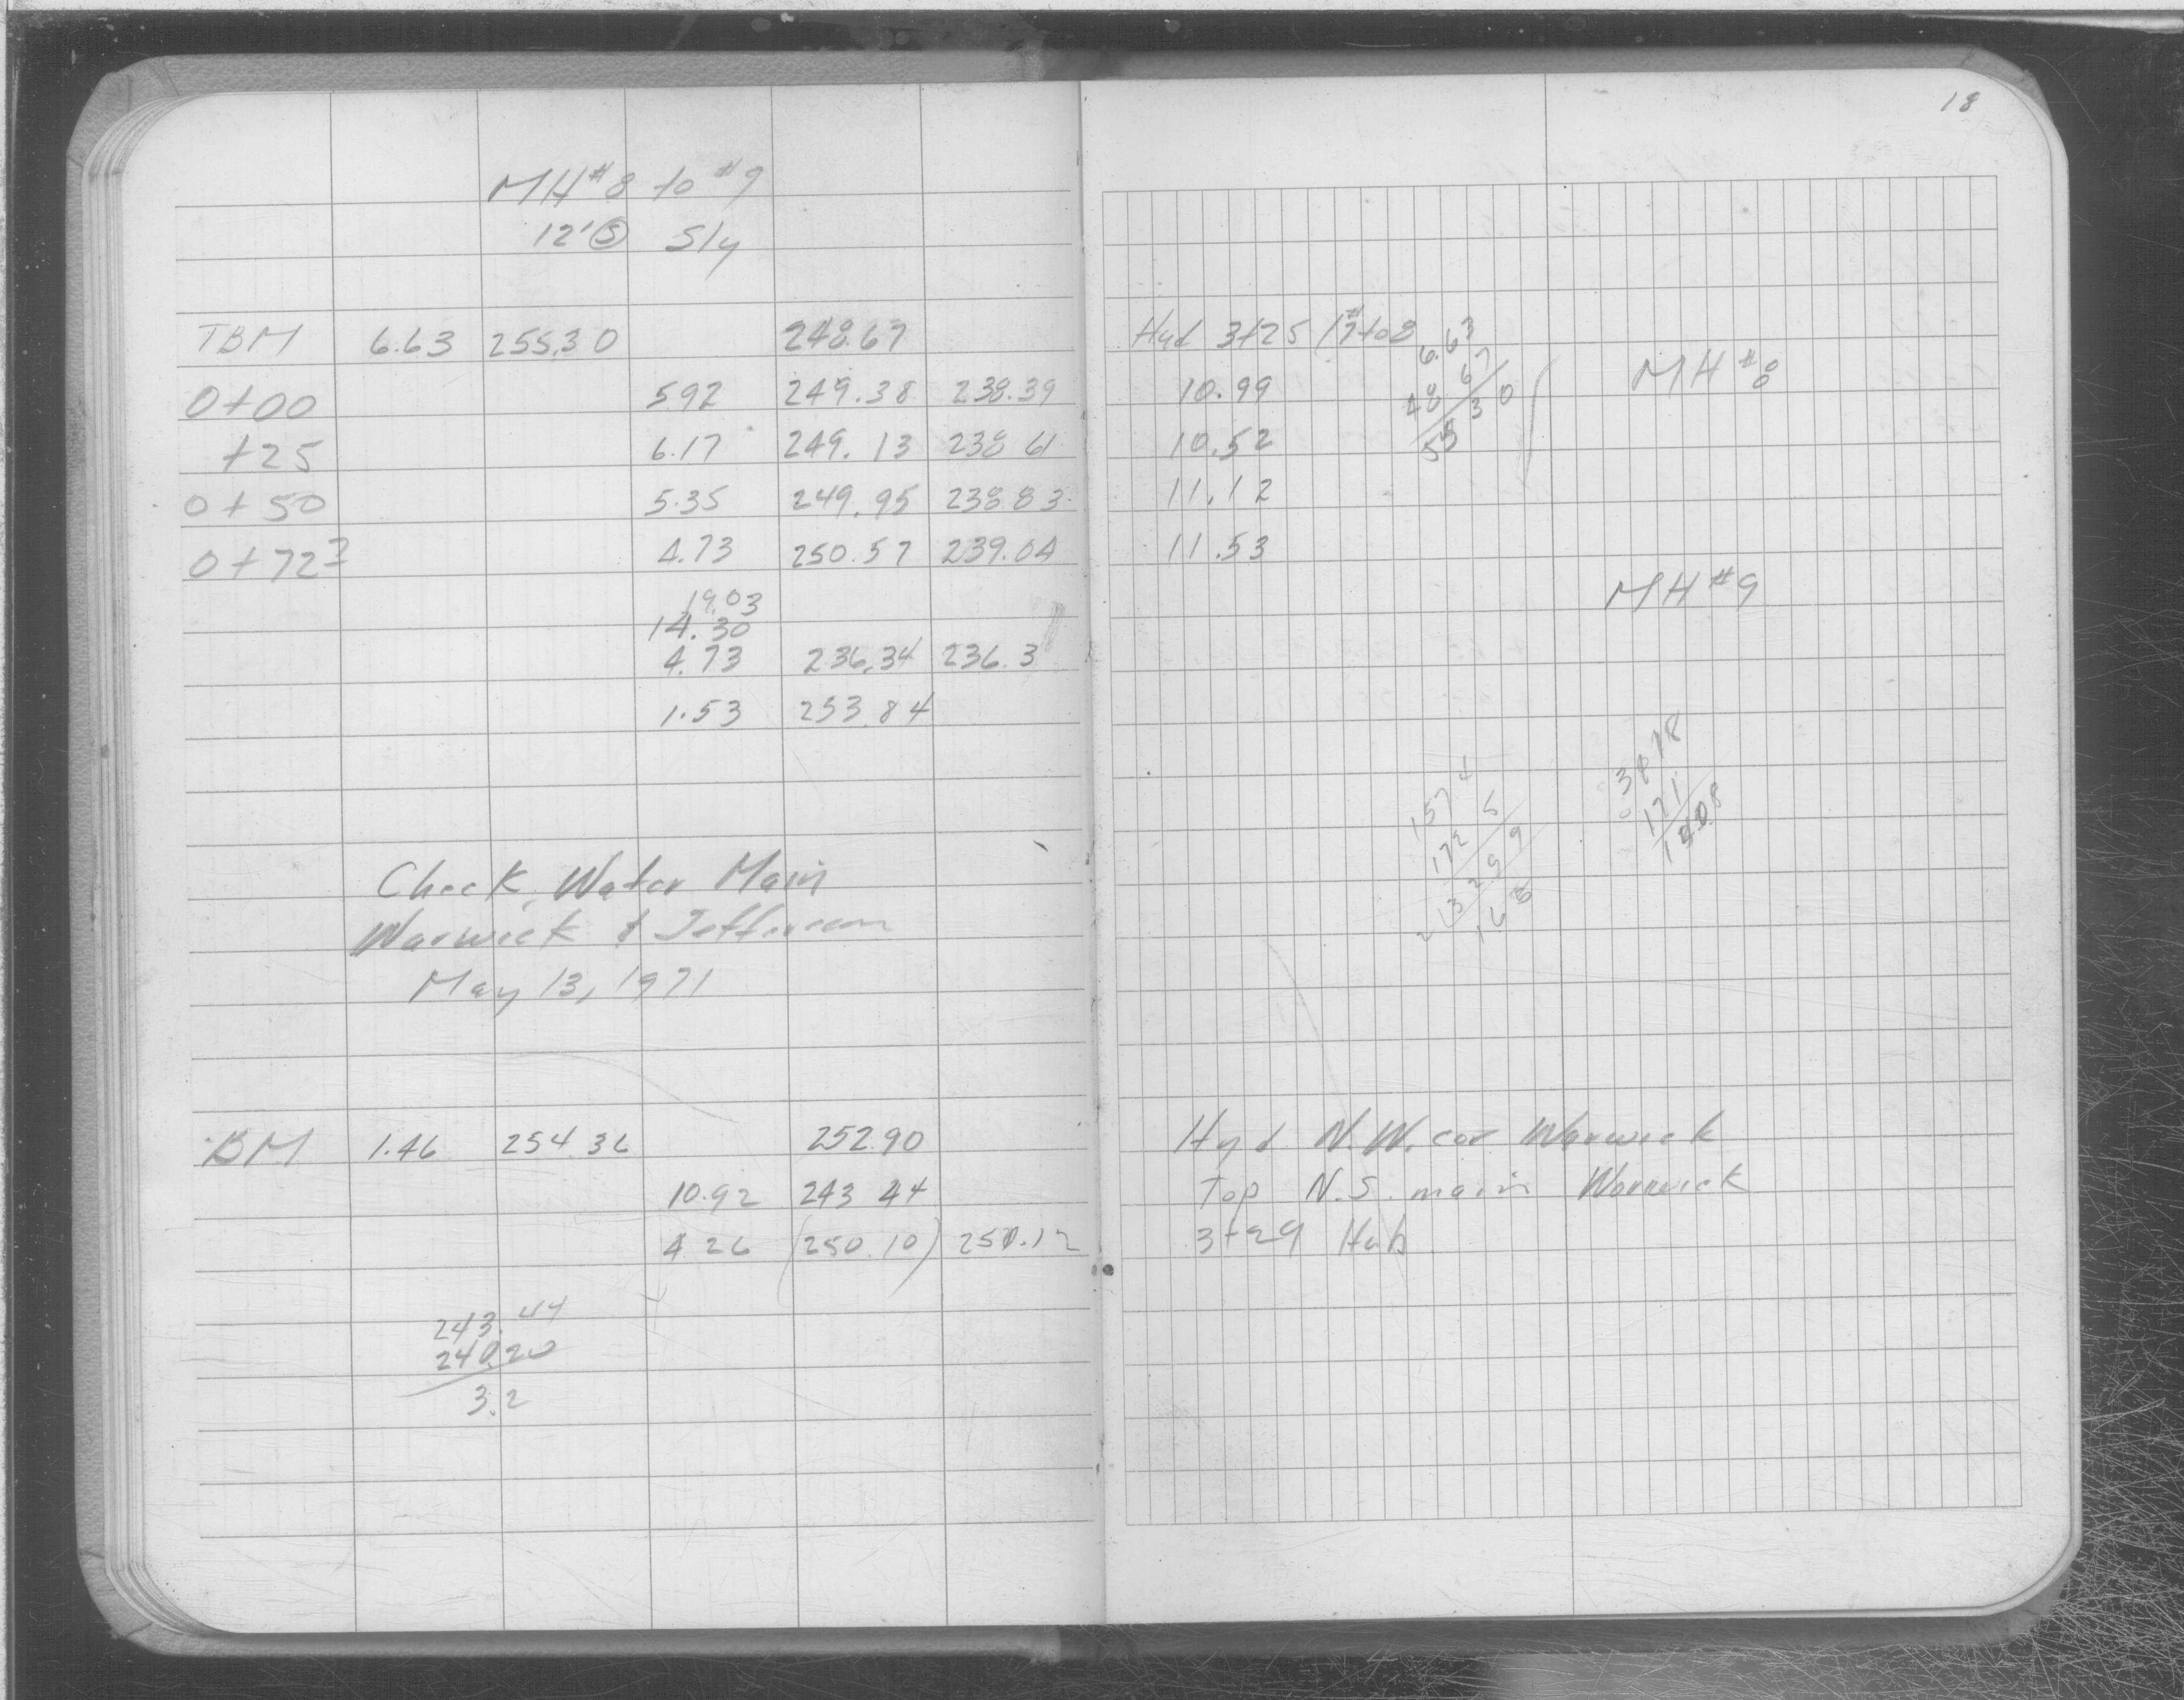 18
MH#8 to #9
12' Ⓢ Sly
TBM 6.63 255.30 248.67 Hyd 3+25 (#7to8
0+00 592 249.38 238.39 10.99 MH #8
+25 6.17 249.13 238 61 10.52
0+50 5.35 249.95 238.83 11.12
0+72 4.73 250.57 239.04 11.53
MH #9
6.63
48 67
55 30
19.03
14.30
4.73 236.34 236.3
1.53 253.84
157 4
172 5
3878
171
Check Water Main
Warwick & Jefferson
May 13, 1971
BM 1.46 254.36 252.90 Hyd N.W. cor Warwick
10.92 243 44 Top N.S. main Warwick
4 26 (250.10) 250.12 3+29 Hub
243.44
240.20
3.2